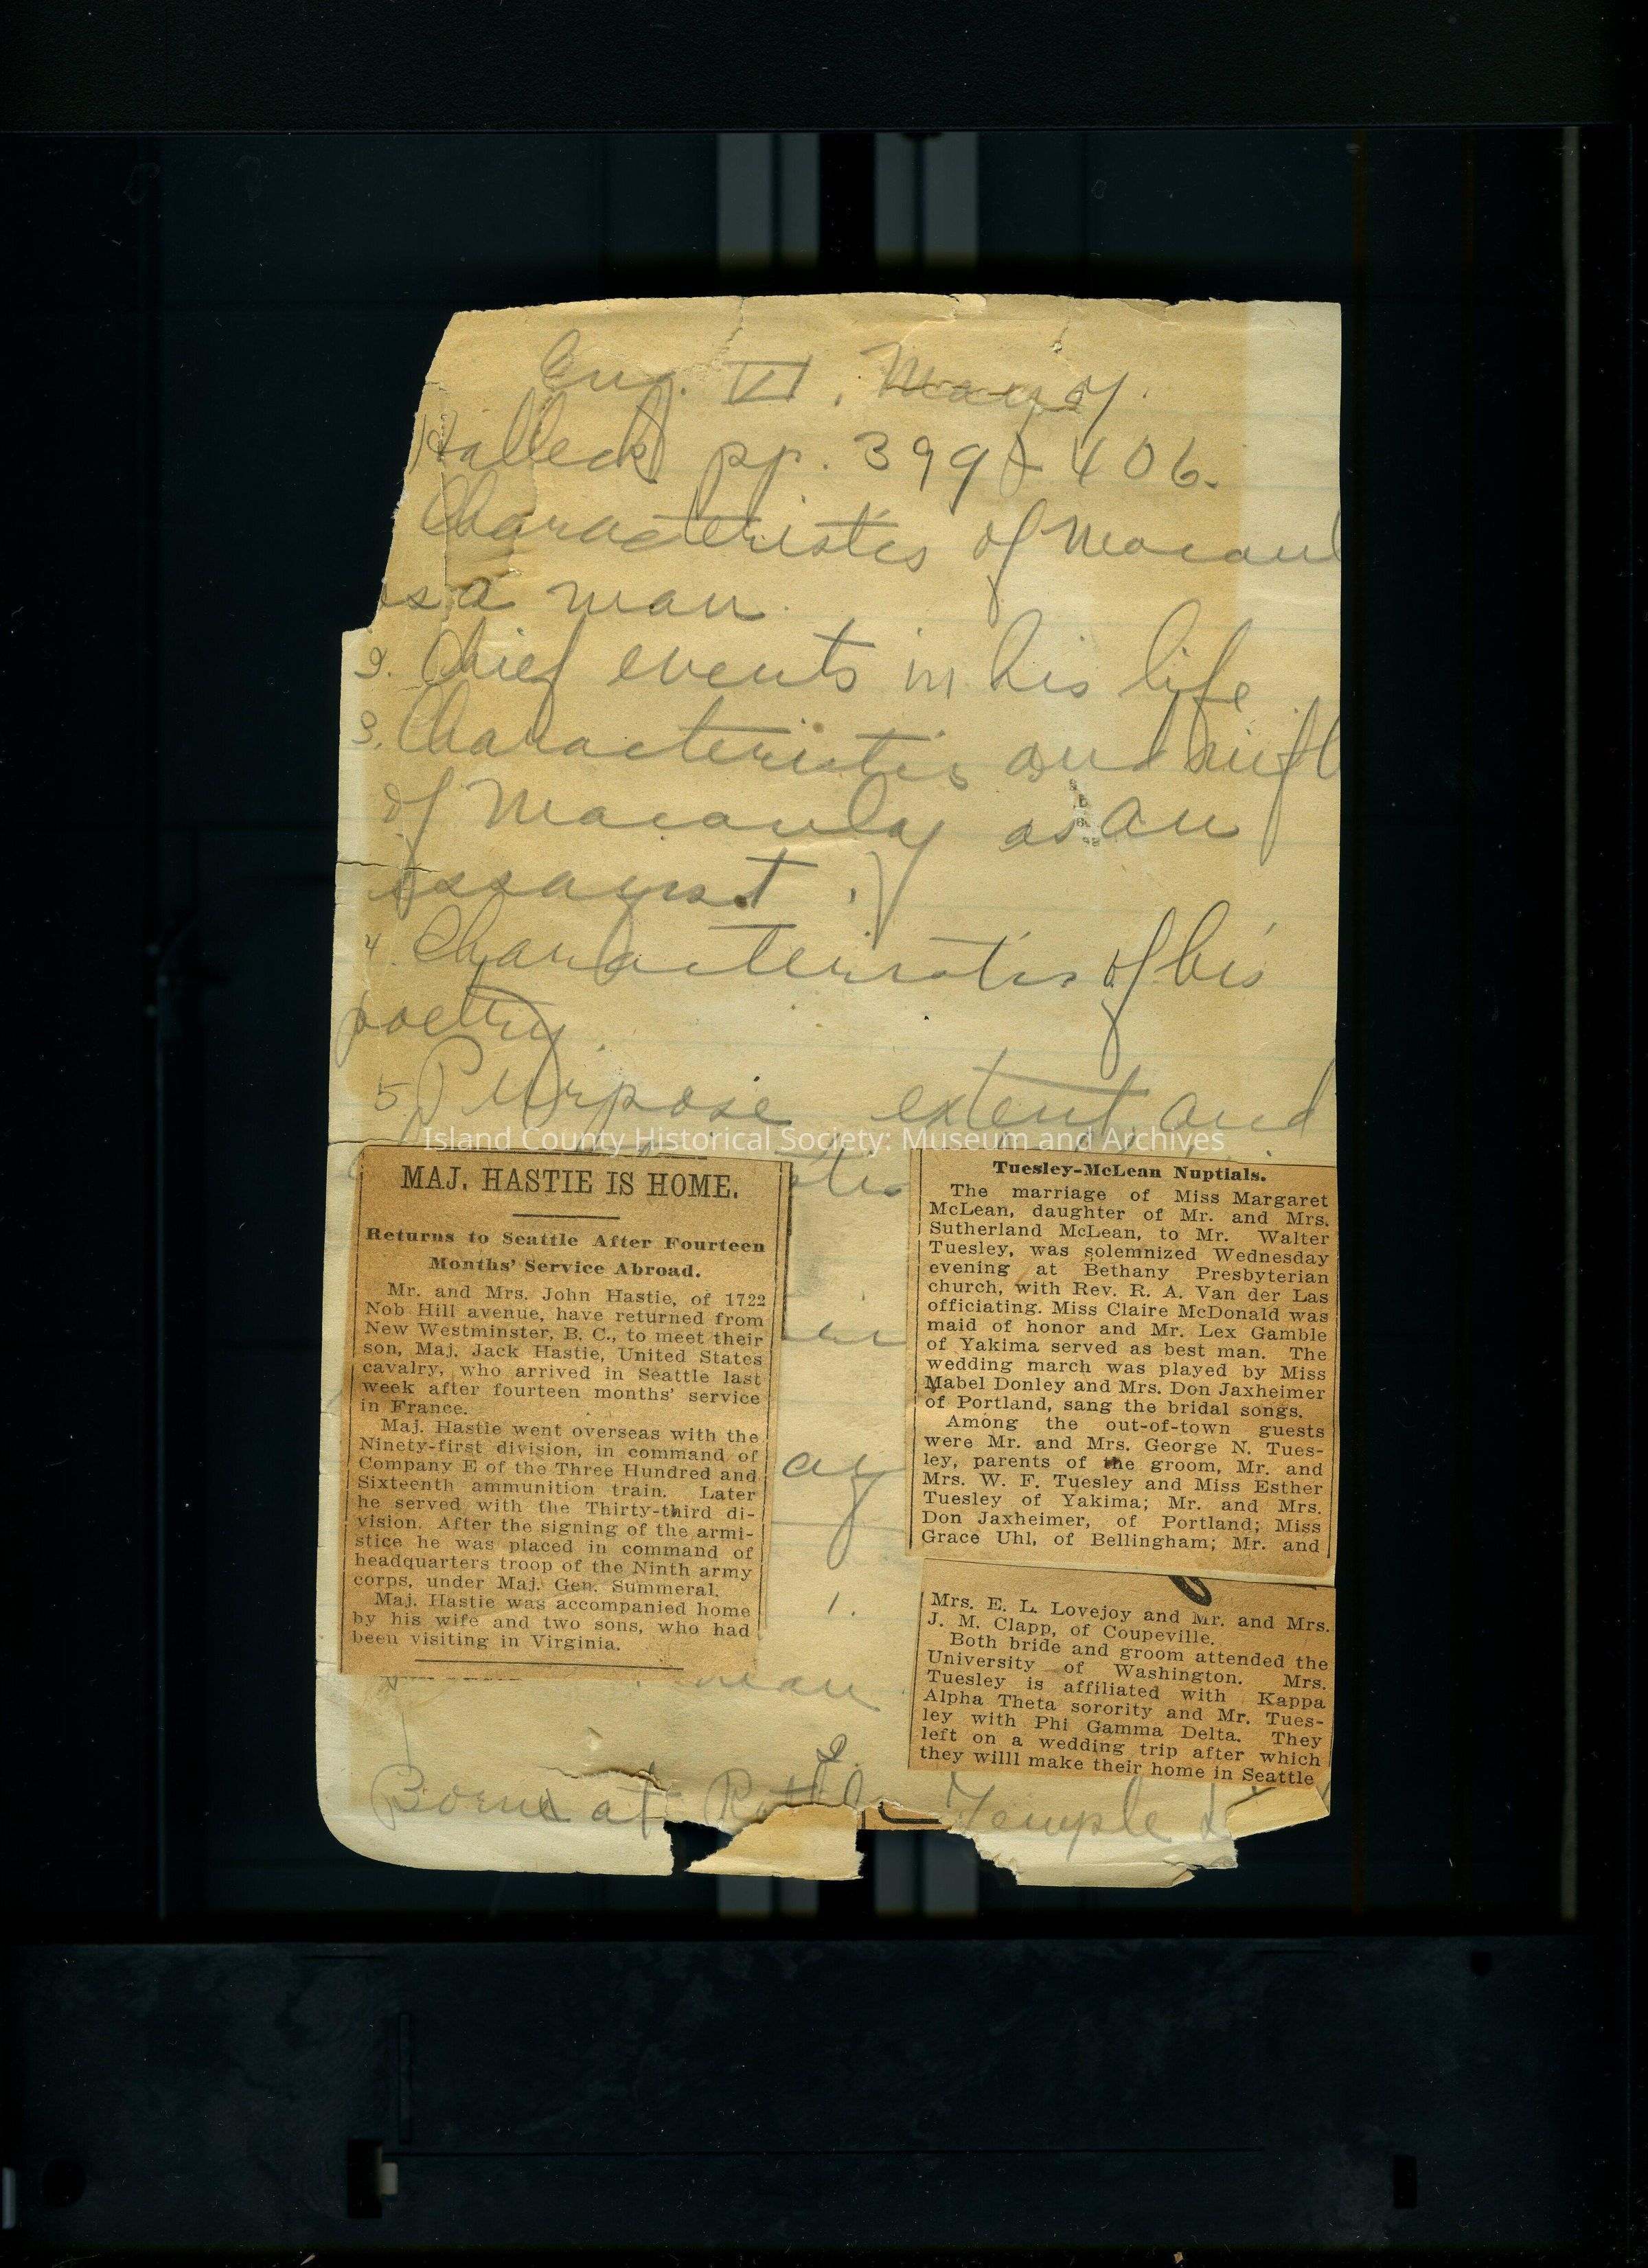 Eng. VI.
Halleck pp. 399 & 406.
Characteristics of Macaul
as a man.
2. Chief events in his life
3. Characteristics and
of Macaulay as an
essayist.
4. Characteristics of his
poetry.
5. Purpose extent and
Island County Historical Society: Museum and Archives
MAJ. HASTIE IS HOME.
Returns to Seattle After Fourteen
Months' Service Abroad.
Mr. and Mrs. John Hastie, of 1722
Nob Hill avenue, have returned from
New Westminster, B. C., to meet their
son, Maj. Jack Hastie, United States
cavalry, who arrived in Seattle last
week after fourteen months' service
in France.
Maj. Hastie went overseas with the
Ninety-first division, in command of
Company E of the Three Hundred and
Sixteenth ammunition train. Later
he served with the Thirty-third di-
vision. After the signing of the armi-
stice he was placed in command of
headquarters troop of the Ninth army
corps, under Maj. Gen. Summeral.
Maj. Hastie was accompanied home
by his wife and two sons, who had
been visiting in Virginia.
Tuesley-McLean Nuptials.
The marriage of Miss Margaret
McLean, daughter of Mr. and Mrs.
Sutherland McLean, to Mr. Walter
Tuesley, was solemnized Wednesday
evening at Bethany Presbyterian
church, with Rev. R. A. Van der Las
officiating. Miss Claire McDonald was
maid of honor and Mr. Lex Gamble
of Yakima served as best man. The
wedding march was played by Miss
Mabel Donley and Mrs. Don Jaxheimer
of Portland, sang the bridal songs.
Among the out-of-town guests
were Mr. and Mrs. George N. Tues-
ley, parents of the groom, Mr. and
Mrs. W. F. Tuesley and Miss Esther
Tuesley of Yakima; Mr. and Mrs.
Don Jaxheimer, of Portland; Miss
Grace Uhl, of Bellingham; Mr. and
Mrs. E. L. Lovejoy and Mr. and Mrs.
J. M. Clapp, of Coupeville.
Both bride and groom attended the
University of Washington. Mrs.
Tuesley is affiliated with Kappa
Alpha Theta sorority and Mr. Tues-
ley with Phi Gamma Delta. They
left on a wedding trip after which
they willl make their home in Seattle
ay
1.
man
2.
Born at Temple